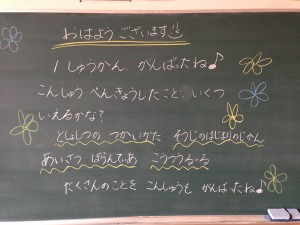 おはようございます!!
1しゅうかん がんばったね♪
こんしゅう べんきょうしたこと、いくつ
いえるかな?
としょしつの つかいかた そうじのはじまりのじかん
あいさつ ぼらんてぃあ こうつうるーる
たくさんのことを こんしゅうも がんばったね♪